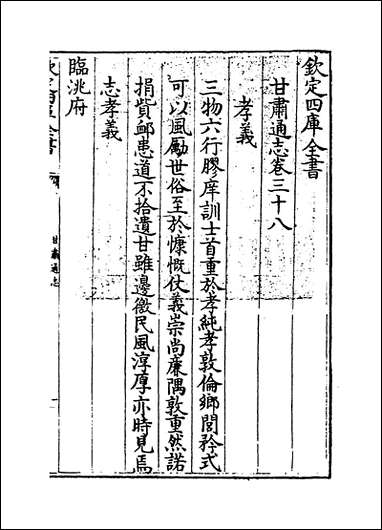 欽定四庫全書
甘肅通志卷三十八
孝義
三物六行膠庠訓士首重於孝純孝敦倫鄉閭矜式
可以風勵世俗至於慷慨仗義崇尚廉隅敦重然諾
捐貲卹患道不拾遺甘雖邊徼民風淳厚亦時見焉
志孝義
臨洮府
甘肅通志